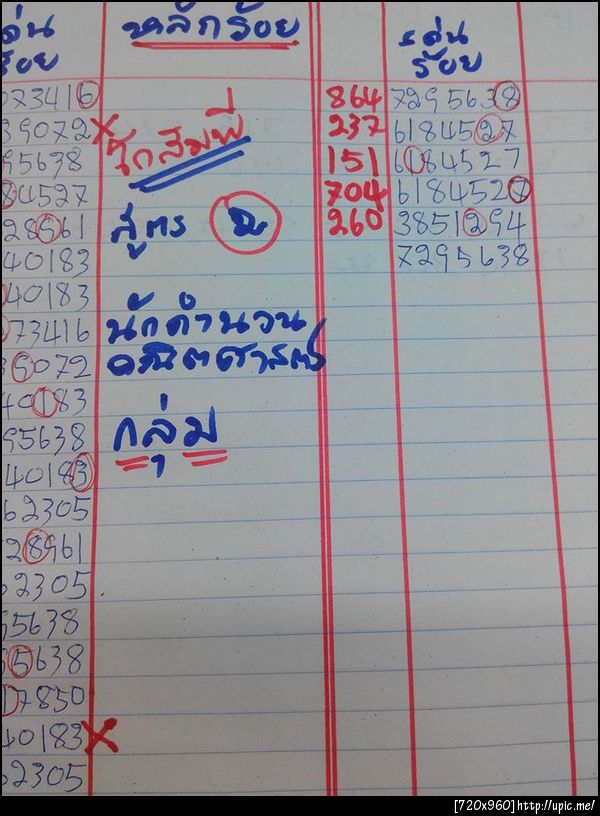 เด่น
ร้อย
หลักร้อย
เด่น
ร้อย
073416
39072
95638
84527
28961
40183
40183
073416
39072
40183
95638
40183
62305
28961
62305
95638
95638
17850
40183
62305
สูตร
นักคำนวน
คณิตศาสตร์
กลุ่ม
864 7295638
237 6184527
151 6184527
704 6184527
260 3851294
7295638
[720x960]http://upic.me/